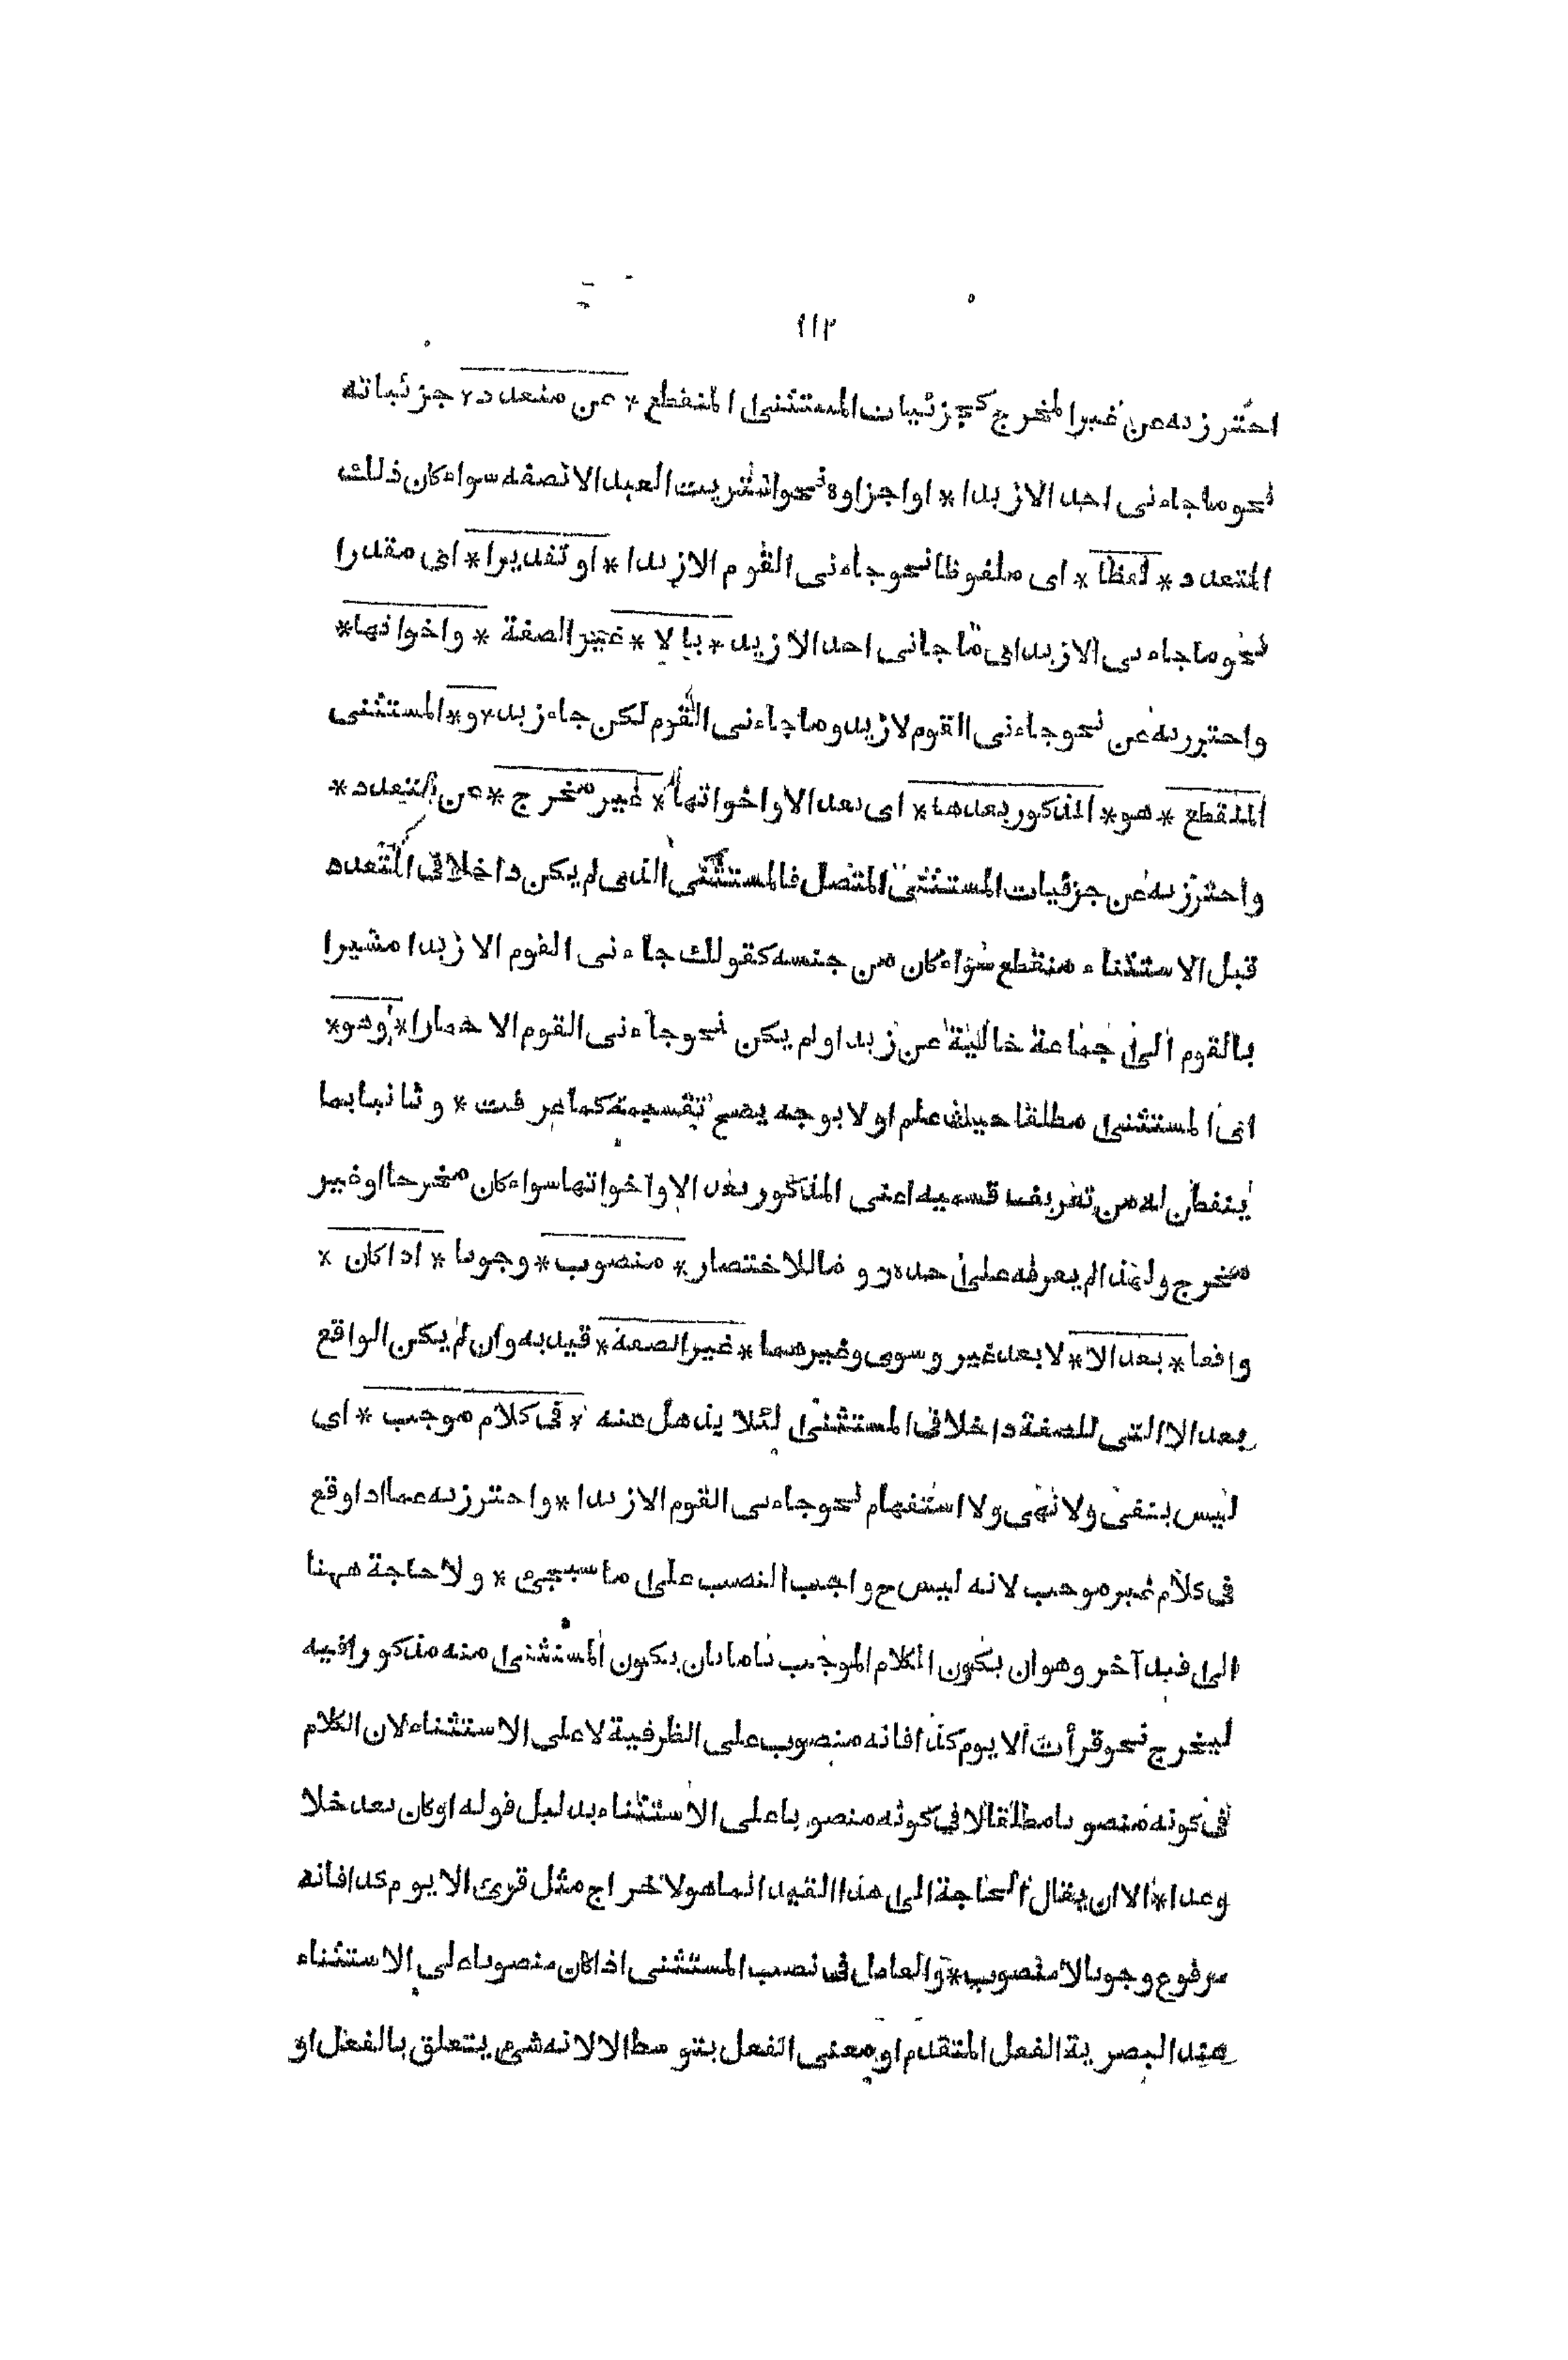 ١١٢
احترز به عن غير المخرج كجزئيات المستثنى المنقطع * عن متعدد * جزئياته
نحو ما جاءنى احد الا زيدا * او اجزاؤه نحو اشتريت العبد الا نصفه سواء كان ذلك
المتعدد * لفظا * اى ملفوظا نحو جاءنى القوم الا زيدا * او تقديرا * اى مقدرا
نحو ما جاءنى الا زيد اى ما جانى احد الا زيد * بالا * غير الصفة * واخواتها *
واحترز به عن نحو جاءنى القوم لا زيد وما جاءنى القوم لكن جاء زيد * و * المستثنى
المنقطع * هو * المذكور بعدها * اى بعد الا واخواتها * غير مخرج * عن المتعدد *
واحترز به عن جزئيات المستثنى المتصل فالمستثنى الذى لم يكن داخلا فى المتعدد
قبل الاستثناء منقطع سواء كان من جنسه كقولك جاءنى القوم الا زيدا مشيرا
بالقوم الى جماعة خالية عن زيد او لم يكن نحو جاءنى القوم الا حمارا * وهو *
اى المستثنى مطلقا حيث علم اولا بوجه يصح تقسيمه كما عرفت * وثانيا بما
يتفطن له من تعريف قسميه اعنى المذكور بعد الا واخواتها سواء كان مخرجا او غير
مخرج ولهذا لم يعرفه على حده روما للاختصار * منصوب * وجوبا * اذا كان *
واقعا * بعد الا * لا بعد غير وسوى وغيرهما * غير الصفة * قيد به وان لم يكن الواقع
بعد الا التى للصفة داخلا فى المستثنى لئلا يذهل عنه * فى كلام موجب * اى
ليس بنفى ولا نهى ولا استفهام نحو جاءنى القوم الا زيدا * واحترز به عما اذا وقع
فى كلام غير موجب لانه ليس ح واجب النصب على ما سيجئ * ولا حاجة ههنا
الى قيد آخر وهو ان يكون الكلام الموجب تاما بان يكون المستثنى منه مذكورا فيه
ليخرج نحو قرأت الا يوم كذا فانه منصوب على الظرفية لا على الاستثناء لان الكلام
فى كونه منصوبا مطلقا لا فى كونه منصوبا على الاستثناء بدليل قوله او كان بعد خلا
وعدا * الا ان يقال الحاجة الى هذا القيد انما هو لاخراج مثل قرئ الا يوم كذا فانه
مرفوع وجوبا لا منصوب * والعامل فى نصب المستثنى اذا كان منصوبا على الاستثناء
عند البصرية الفعل المتقدم او معنى الفعل بتوسط الا لانه شئ يتعلق بالفعل او